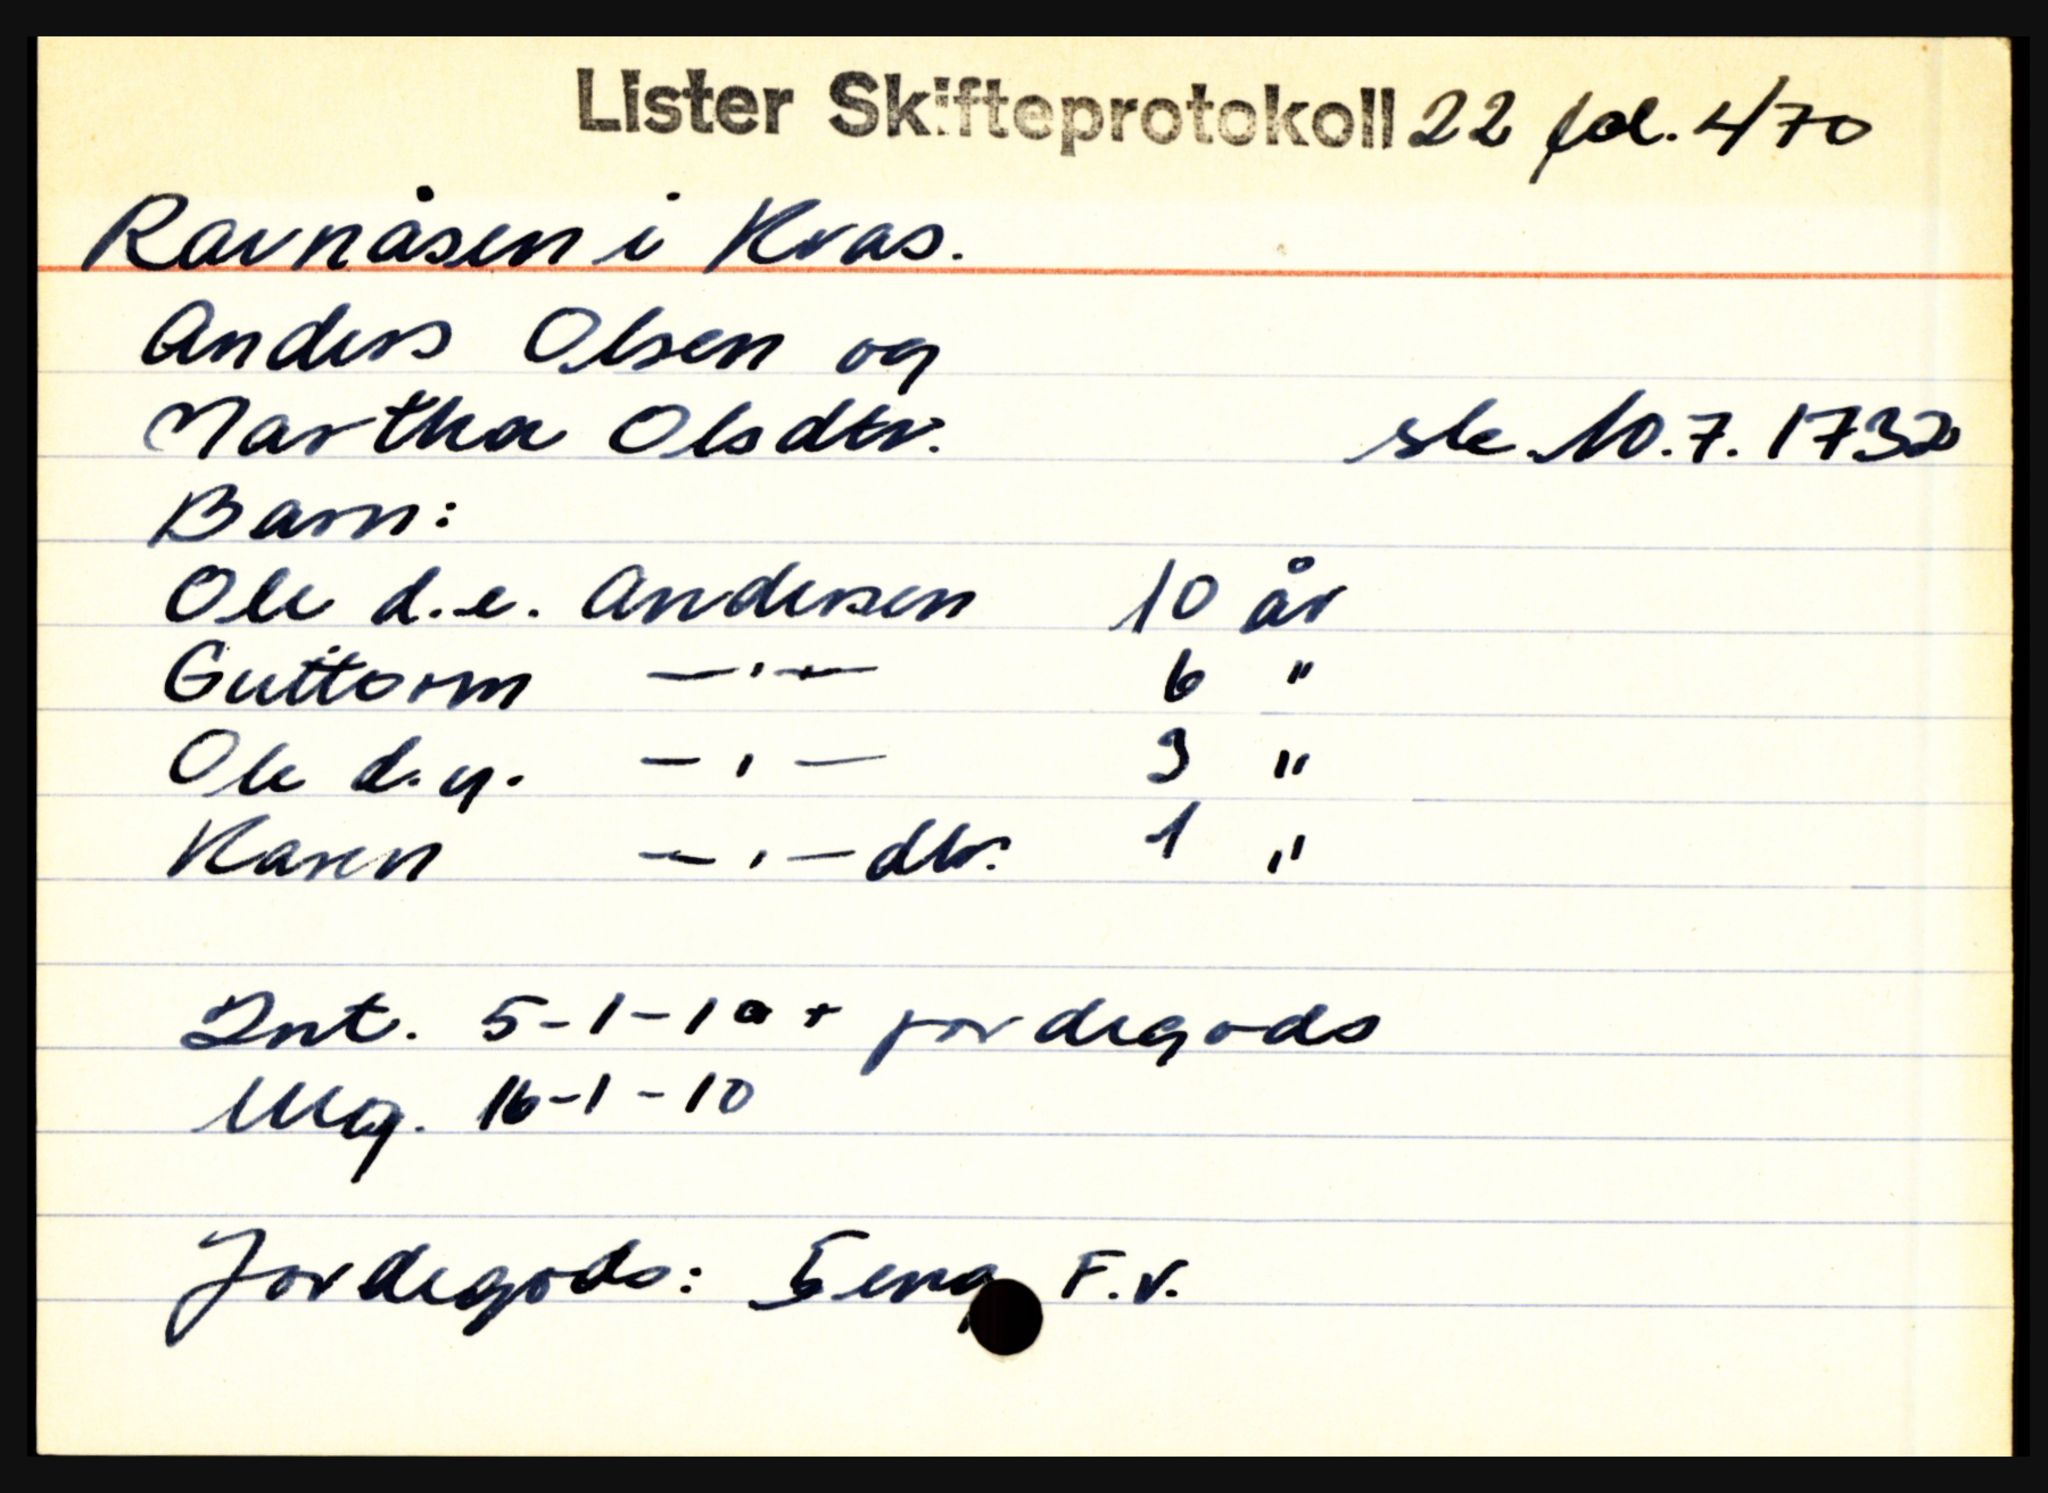 Lister Skifteprotokoll 22 fol. 470
Ravnåsen i Kvas.
Anders Olsen og
Martha Olsdtr. sk. 10.7.1732
Barn:
Ole d.e. Andersen 10 år
Guttorm —"— 6 "
Ole d.y. —"— 3 "
Karen —"—dtr. 1 "
Int. 5-1-10 + jordegods
Utlg. 16-1-10
Jordegods: 5 eng F.v.